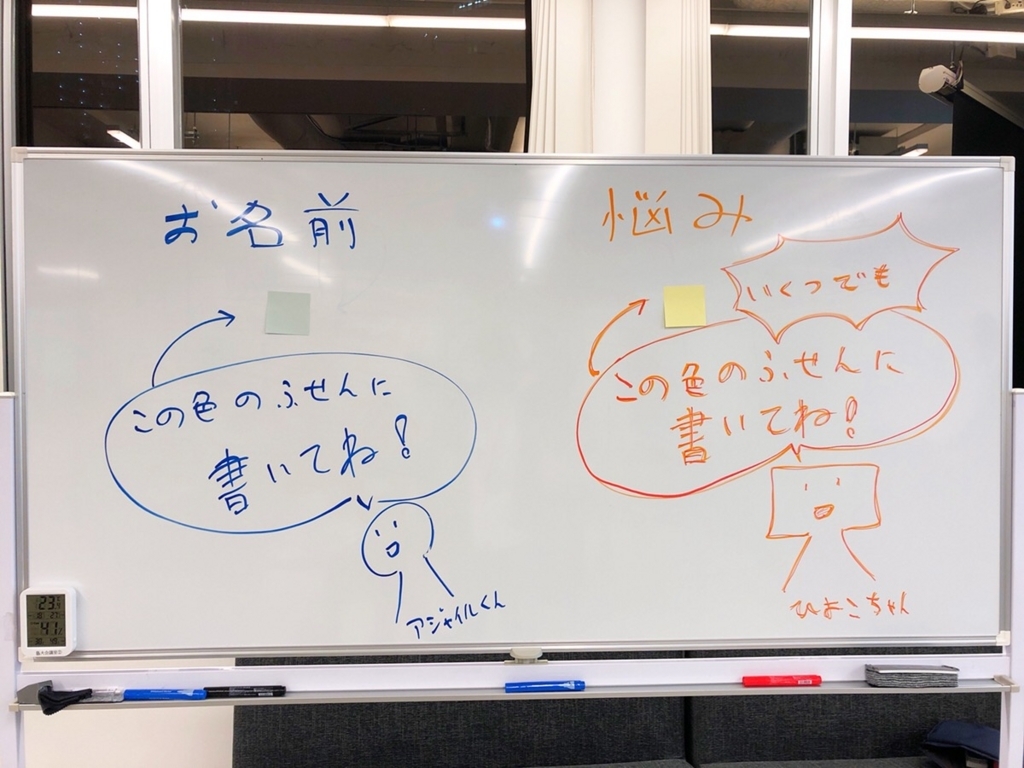 お名前
この色のふせんに
書いてね!
アジャイルくん
悩み
いくつでも
この色のふせんに
書いてね!
ひよこちゃん